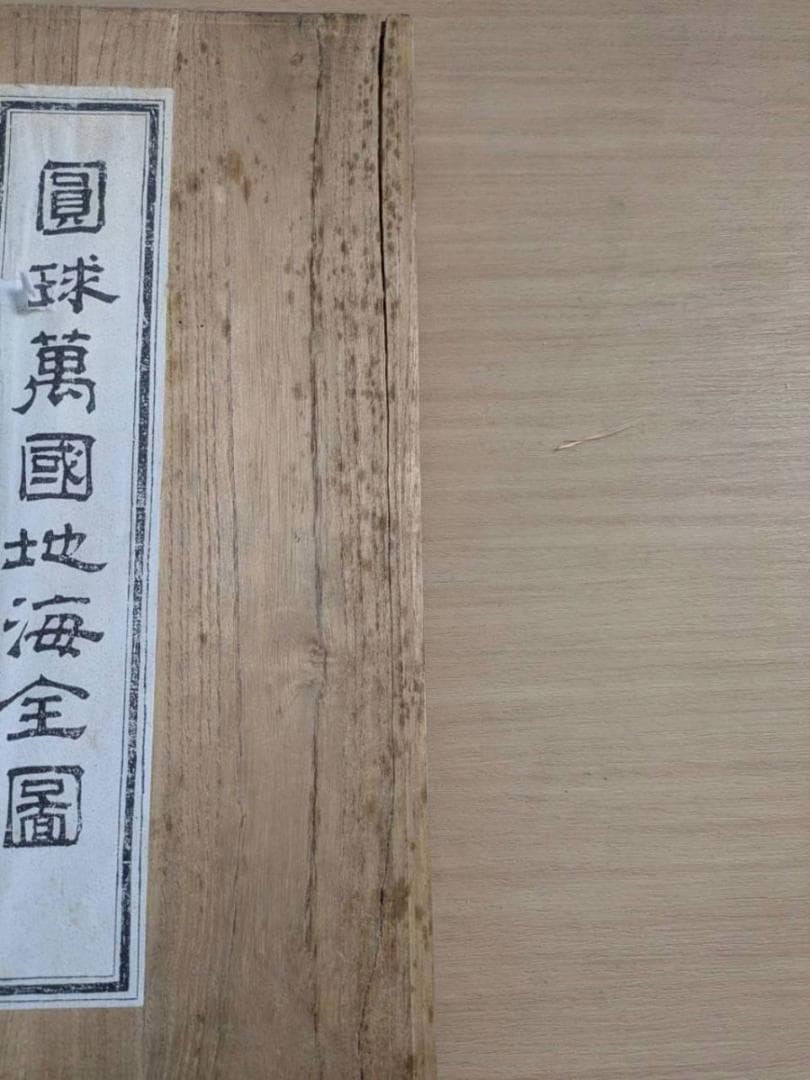 圓球萬國地海全圖